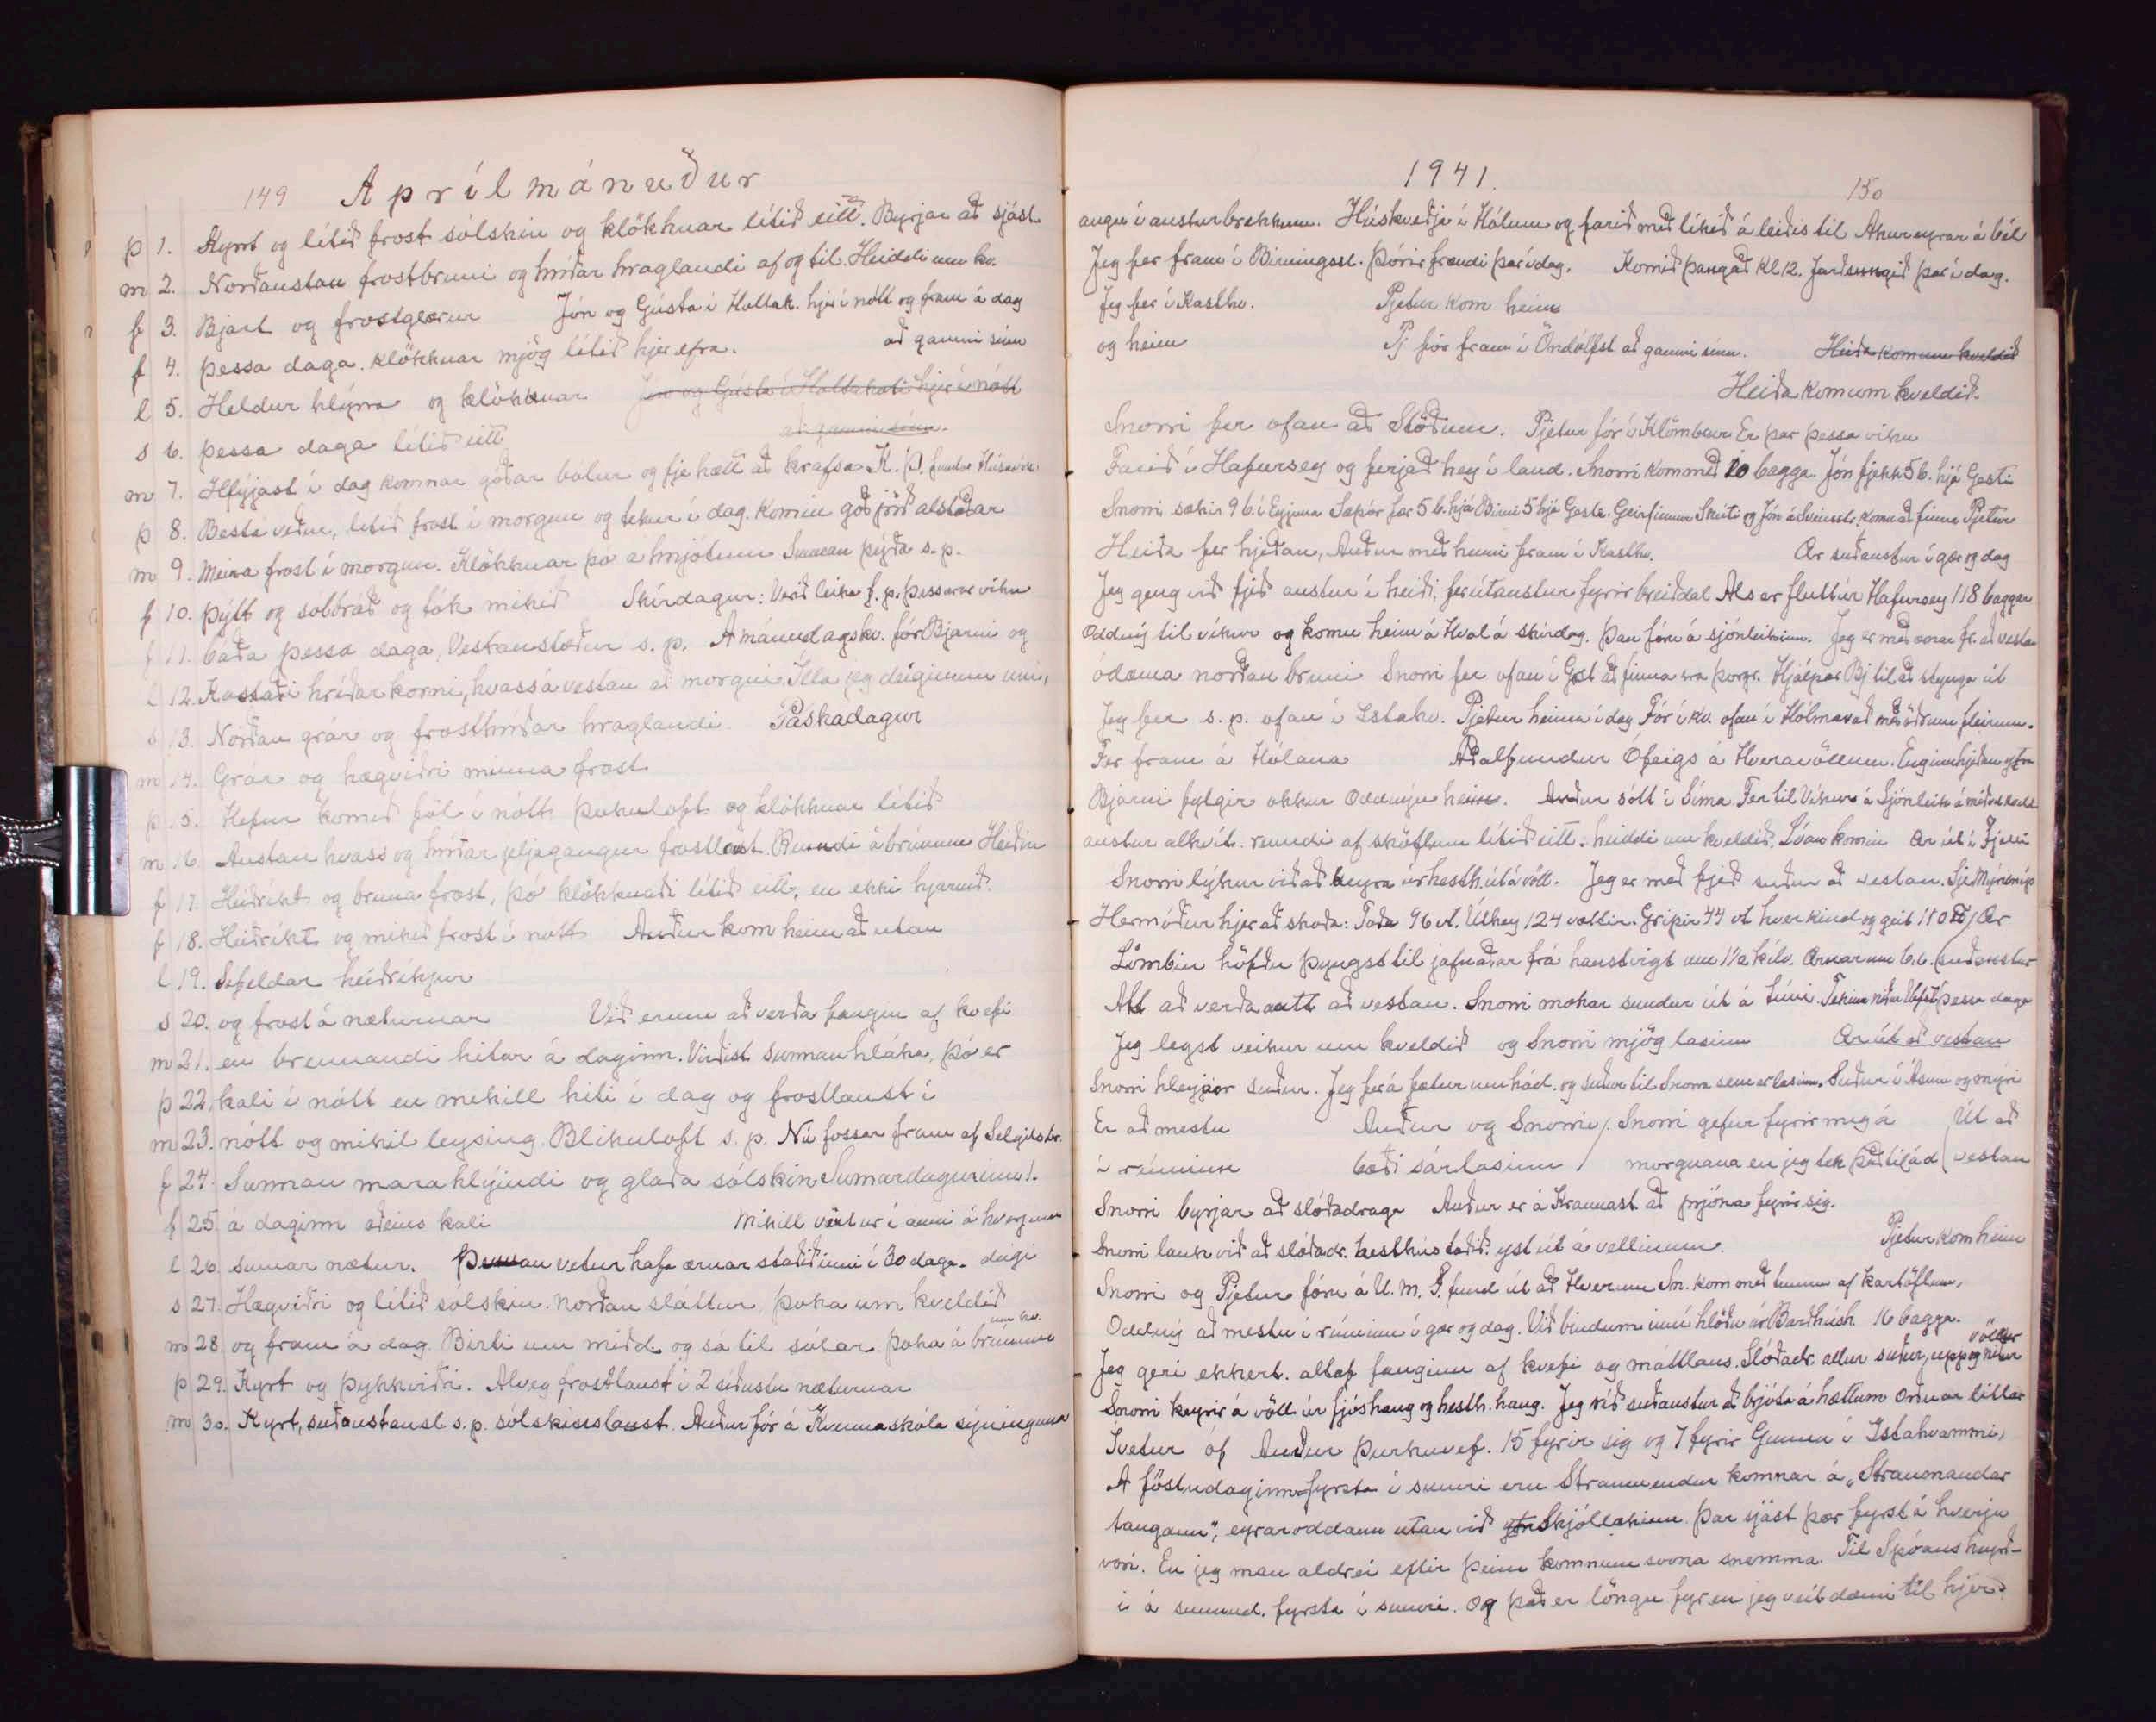 149 Aprílmánuður
þ 1. Kyrrt og lítið frost sólskin og klökknar lítið eitt. Byrjar að sjást
m 2. Norðaustan frostbruni og hríðar hraglandi af og til. Heiddi um kv.
f 3. Bjart og frostglærur Jón og Gústa í Holtak. hjer í nótt og fram á dag
f 4. þessa daga. klökknar mjög lítið hjer efra. að gamni sínu
l 5. Heldur hlýrra og klökknar Jón og Gústa í Holtakoti hjer í nótt
að gamni sínu.
s 6. þessa daga lítið eitt
m 7. Hlýjast í dag komnar góðar bótur og fje hætt að krafsa K. Þ. fundur Húsavík
þ 8. Besta veður, lítið frost í morgun og tekur í dag. Komin góð jörð alstaðar
m 9. Meira frost í morgun. Klökknar þó á hnjótum Sunnan þýða s. p.
f 10. Þýtt og sólbráð og tók mikið Skírdagur: Verið leika f. p. þessarar viku
f 11. báða þessa daga, Vestanstæður s. p. Á mánudagskv. fór Bjarni og
l 12. Kastaði hríðarkorni, hvass á vestan að morgni. Illa jeg deiginum inni,
s 13. Norðan grár og frosthríðar hraglandi. Páskadagur
m 14. Grár og hægviðri minna frost
þ 15. Hefur komið föl í nótt þokuloft og klökknar lítið
m 16. Austan hvass og hríðar jeljagangur frostlaust. Rumdi á brúnum Heiðin
f 17. Heiðríkt og bruna frost, þó klökknaði lítið eitt, en ekki hjarnið.
f 18. Heiðríkt og mikið frost í nótt Auður kom heim að utan
l 19. Sífeldar heiðríkjur
s 20. og frost á næturnar Við erum að verða fangin af kvefi
m 21. en brennandi hitar á daginn. Virðist sunnan hláka, þó er
þ 22. kali í nótt en mikill hiti í dag og frostlaust í
m 23. nótt og mikil leysing. Blikuloft s. p. Nú fossar fram af Selgilsbr.
f 24. Sunnan mara hlýindi og glaða sólskin Sumardagurinn 1.
f 25. á daginn aðeins kali Mikill vöxtur í anni á hverjum
l 26. sumar nætur. Þennan vetur hafa ærnar staðið inni í 30 daga. degi
s 27. Hægviðri og lítið sólskin. norðan sláttur, þoka um kveldið
um kv.
m 28. og fram á dag. Birti um miðd. og sá til sólar. þoka á brúnum
þ 29. Kyrt og þykkviðri. Alveg frostlaust í 2 síðustu næturnar
m 30. Kyrt, suðaustanst s. p. sólskinslaust. Auður fór á Kvennaskóla sýninguna
1941. 150
augu í austurbrekkum. Húskveðja í Hólum og farið með líkið á leiðis til Akureyrar á bíl
Jeg fer fram í Birningsst. Þórir frændi þar í dag. Komið þangað kl 12. Jarðsungið þar í dag.
Jeg fer í Kasthv. Pjetur kom heim
og heim Pj fór fram í Öndólfst að gamni sínu. Heiða kom um kveldið
Heiða kom um kveldið.
Snorri fer ofan að Slöðum. Pjetur fór í Klömbur. Er þar þessa viku
Farið í Hafursey og ferjað hey í land. Snorri kom með 10 bagga. Jón fjekk 5 b. hjá Gesti
Snorri sækir 9 b. í Eyjuna Sæþór fær 5 b. hjá Birni 5 hjá Geste. Geirfinnur Skúti og Jón á Sveinsstr. koma að finna Pjetur
Heiða fer hjeðan, Auður með henni fram í Kasthv. Ær suðaustur í gær og dag
Jeg geng við fjeð austur í heiði, fer útaustur fyrir breiðdal Als er flutt úr Hafursey 118 baggar
Oddný til víkur og komu heim á Hval á skírdag. Þau fóru á sjónleikinn. Jeg er með ærnar fr. að vestan
ódæma norðan bruni Snorri fer ofan í Grst að finna sra Þorgr. Hjálpar Bj til að stynga út
Jeg fer s. p. ofan í Ystahv. Pjetur heima í dag Fór í kv. ofan í Hólmavað með öðrum fleirum.
Fer fram á Hólana Aðalfundur Ófeigs á Hveravöllum. Enginn hjeðan ytra
Bjarni fylgir okkur Oddnýu heim. Auður sótt í Síma. Fer til Víkur á Sjónleik á miðvd. kveld
austur alhvít. renndi af sköflum lítið eitt. heiddi um kveldið. Lóan komin Ær út í Fjelli
Snorri lýkur við að keyra úr hesth. út á völl. Jeg er með fjeð suður að vestan. Sje Mýrisníp
Hermóður hjer að skoða: Taða 96 vt. Úthey 124 vættir. Gripir 44 vt hver kind og geit 110 ℔ / Ær
Lömbin höfðu þyngst til jafnaðar frá haustvigt um 1½ kíló. Ærnar um 6. v. (suðaustur
Alt að verða autt að vestan. Snorri mokar sundur út á túni. Tekinn niður Vefst. þessa daga
Jeg legst veikur um kveldið og Snorri mjög lasinn Ær út að vestan
Snorri hleypir suður. Jeg fer á fætur um hád. og suður til Snorra sem er lasinn. Suður í Ásum og mýri
Er að mestu Auður og Snorri /. Snorri gefur fyrir mig á (Út að
í rúminu bæði sárlasinn / morgnana en jeg tek það til ád (vestan
Snorri byrjar að slóðadraga Auður er á Kraunast að prjóna fyrir sig.
Snorri lauk við að slóðadr. hesthústaðið. yst út á vellinum. Pjetur kom heim
Snorri og Pjetur fóru á U. M. F. fund út að Hverum Sn. kom með tunnu af kartöflum.
Oddný að mestu í rúminu í gær og dag. Við bindum inn í hlöðu úr Barðhúsh. 16 bagga.
völlur
Jeg geri ekkert. altaf fanginn af kvefi og máttlaus. Slóðadr. allur suður, upp og niður
Snorri keyrir á völl úr fjóshaug og hesth. haug. Jeg ríð suðaustur að brjóta á hættum Orðnar litlar
Í vetur óf Auður þurkuvef. 15 fyrir sig og 7 fyrir Gunnu í Ystahvammi,
Á föstudaginn fyrsta í sumri eru Straumendur komnar á „Straumandar
tangann", eyraroddann utan við ytri Skjóllækinn. Þar sjást þær fyrst á hverju
vori. En jeg man aldrei eftir þeim komnum svona snemma. Til Spóans heyrð-
i á sunnud. fyrsta í sumri. Og það er löngu fyr en jeg veit dæmi til hjer.